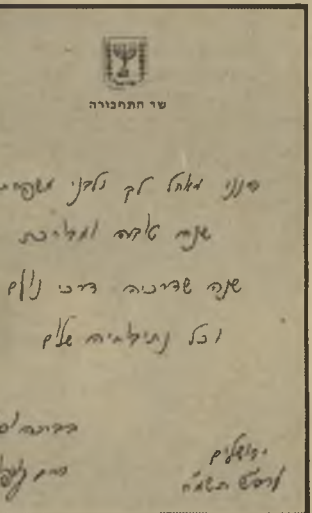 שר התחבורה
הנני מאחל לך ולבני משפחתך
שנה טובה ומבורכת
שנה שדרכיה דרכי נועם
וכל נתיבותיה שלום
בברכה
ירושלים
ערה"ש תשמ"ח